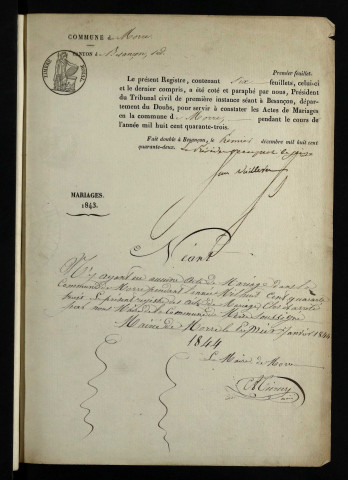 COMMUNE d Morre
CANTON d Besançon, sud.
TIMBRE ROYAL
Premier feuillet.
Le présent Registre, contenant six feuillets, celui-ci
et le dernier compris, a été coté et paraphé par nous, Président
du Tribunal civil de première instance séant à Besançon, dépar-
tement du Doubs, pour servir à constater les Actes de Mariages
en la commune d Morre, pendant le cours de
l'année mil huit cent quarante-trois.
Fait double à Besançon, le décembre mil huit cent
quarante-deux.
MARIAGES.
1843.
Néant
N'y ayant eu aucun acte de Mariage dans la
Commune de Morre pendant l'année Mil huit Cent quarante
trois. Le présent registre des actes de Mariage Clos et arrêté
par nous Maire de la Commune de Morre Soussigné
Mairie de Morre le premier Janvier 1844
1844
Le Maire de Morre